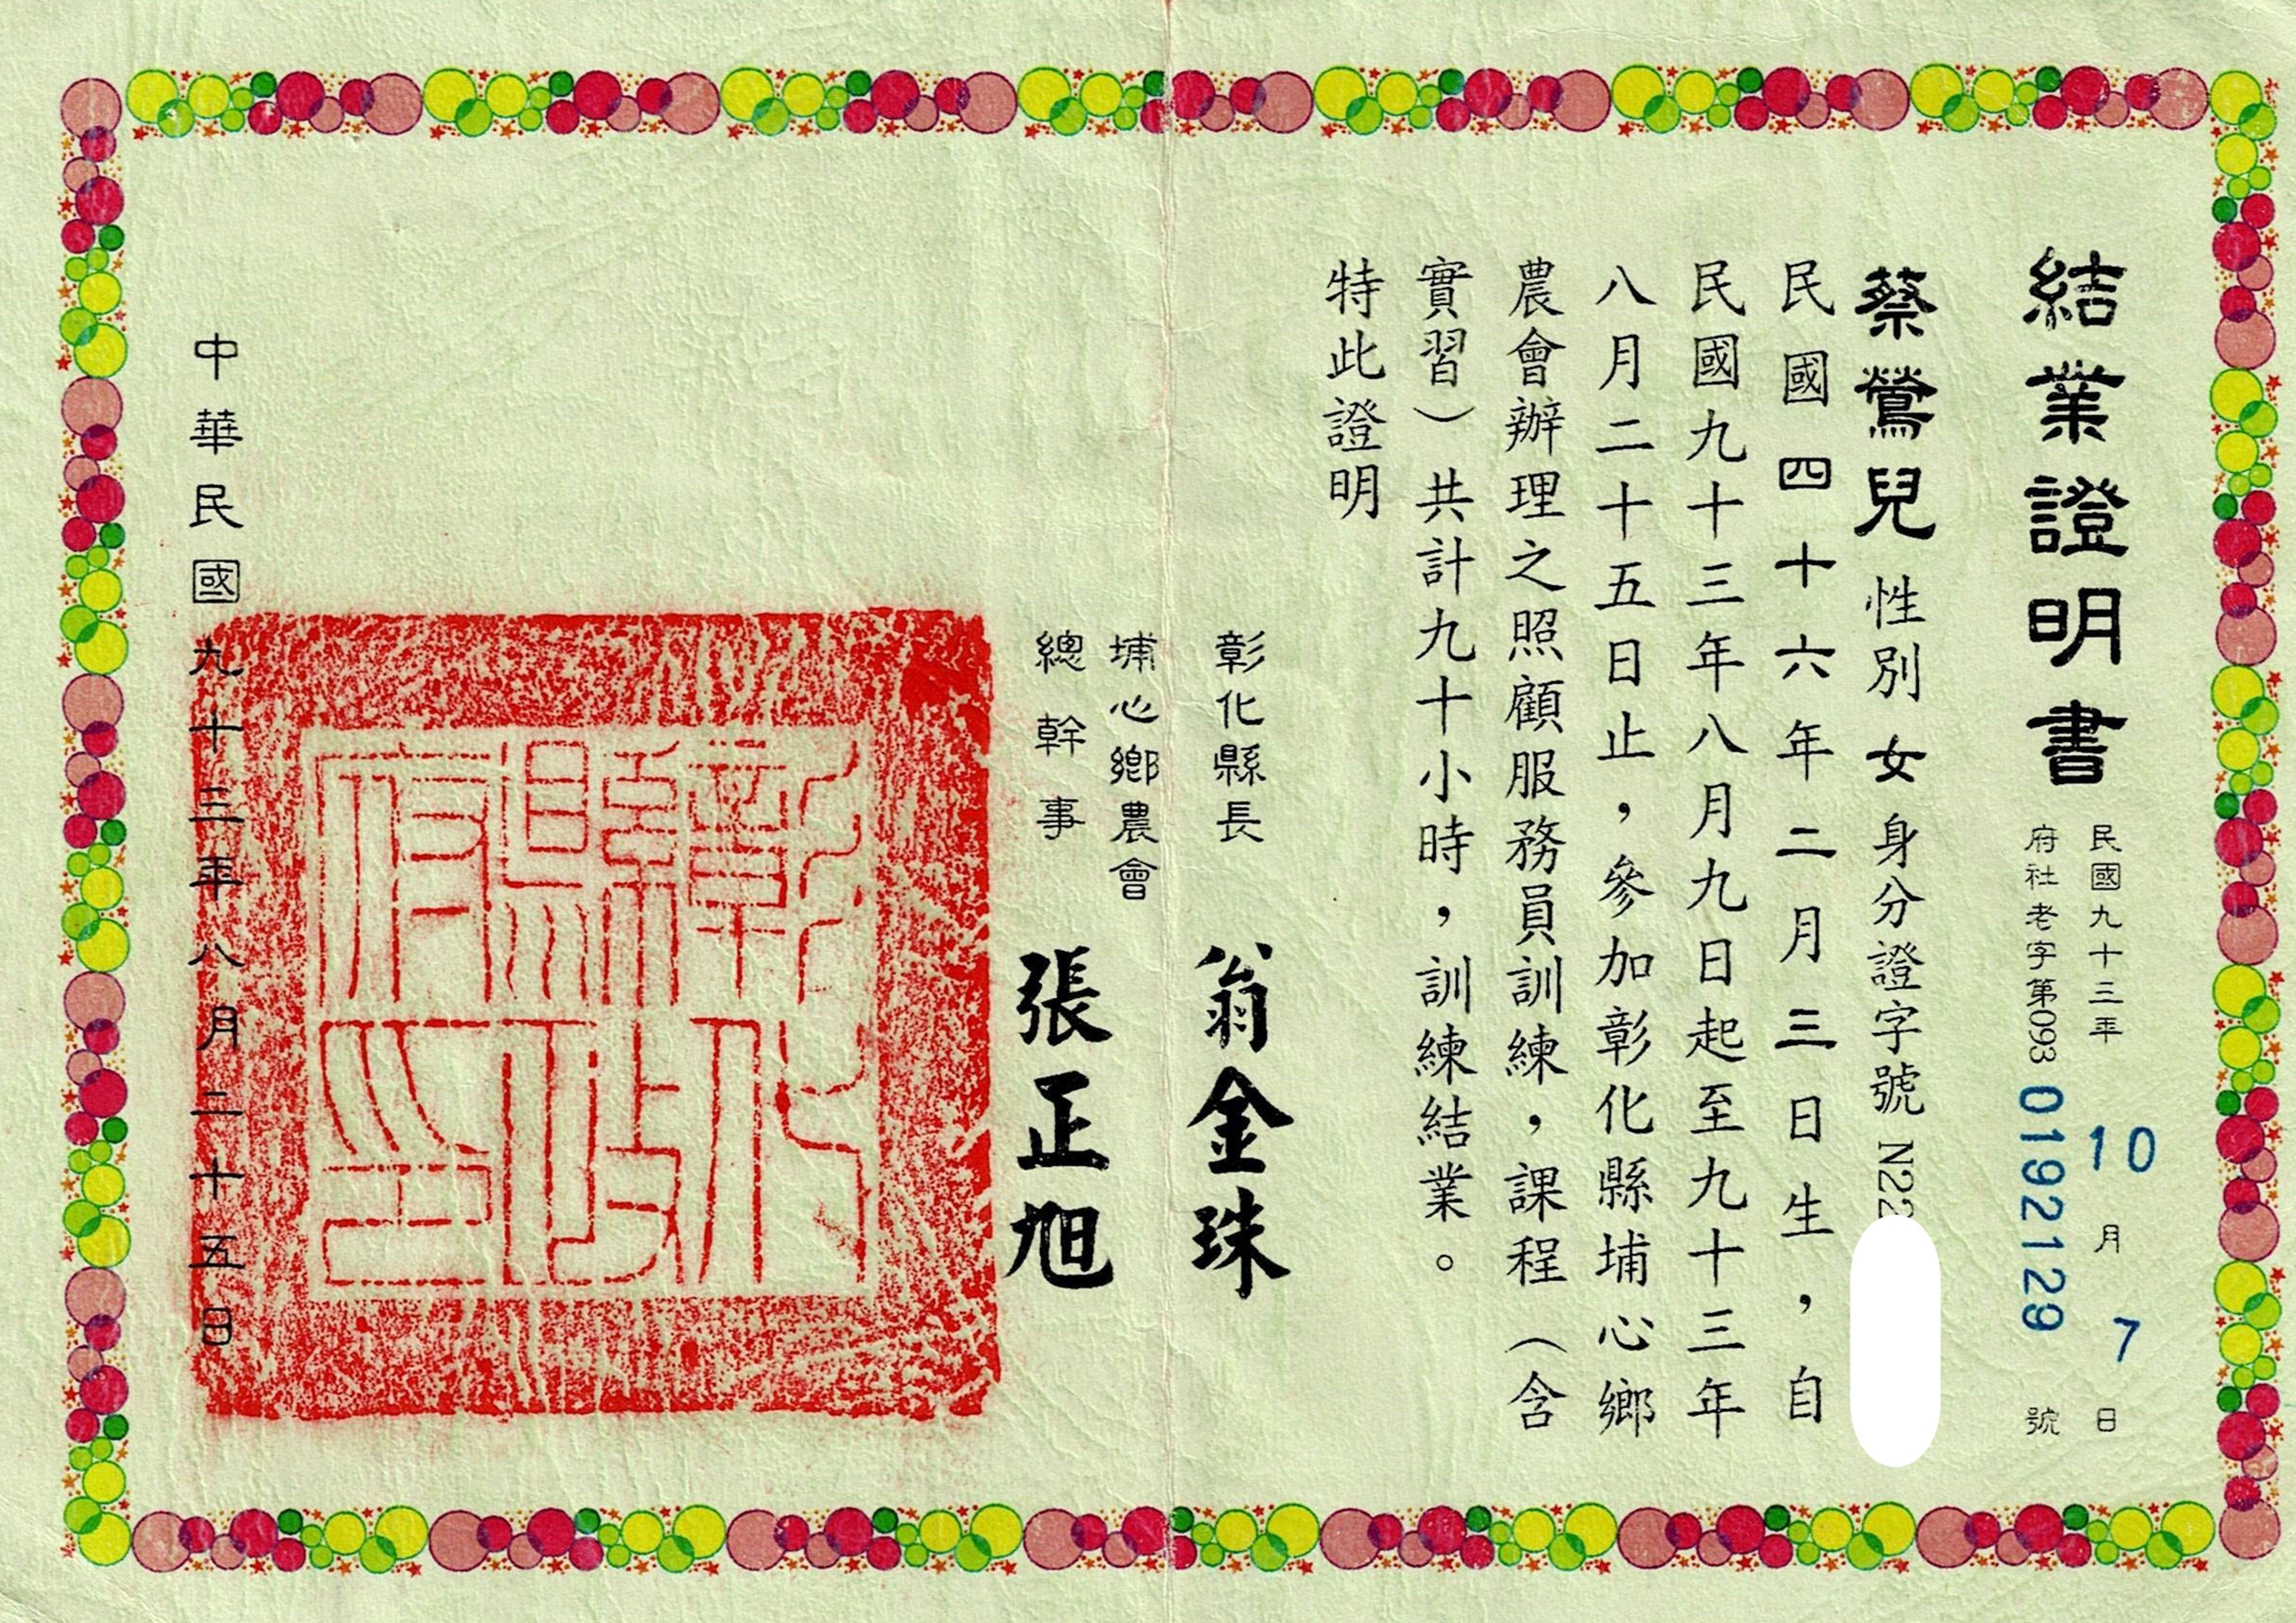 結業證明書
民國九十三年10月7日
府社老字第093 0192129號
蔡鶯兒 性別 女 身分證字號 N22
民國四十六年二月三日生，自
民國九十三年八月九日起至九十三年
八月二十五日止，參加彰化縣埔心鄉
農會辦理之照顧服務員訓練，課程（含
實習）共計九十小時，訓練結業。
特此證明
彰化縣長 翁金珠
埔心鄉農會
總幹事 張正旭
彰化縣政府印
中華民國九十三年八月二十五日